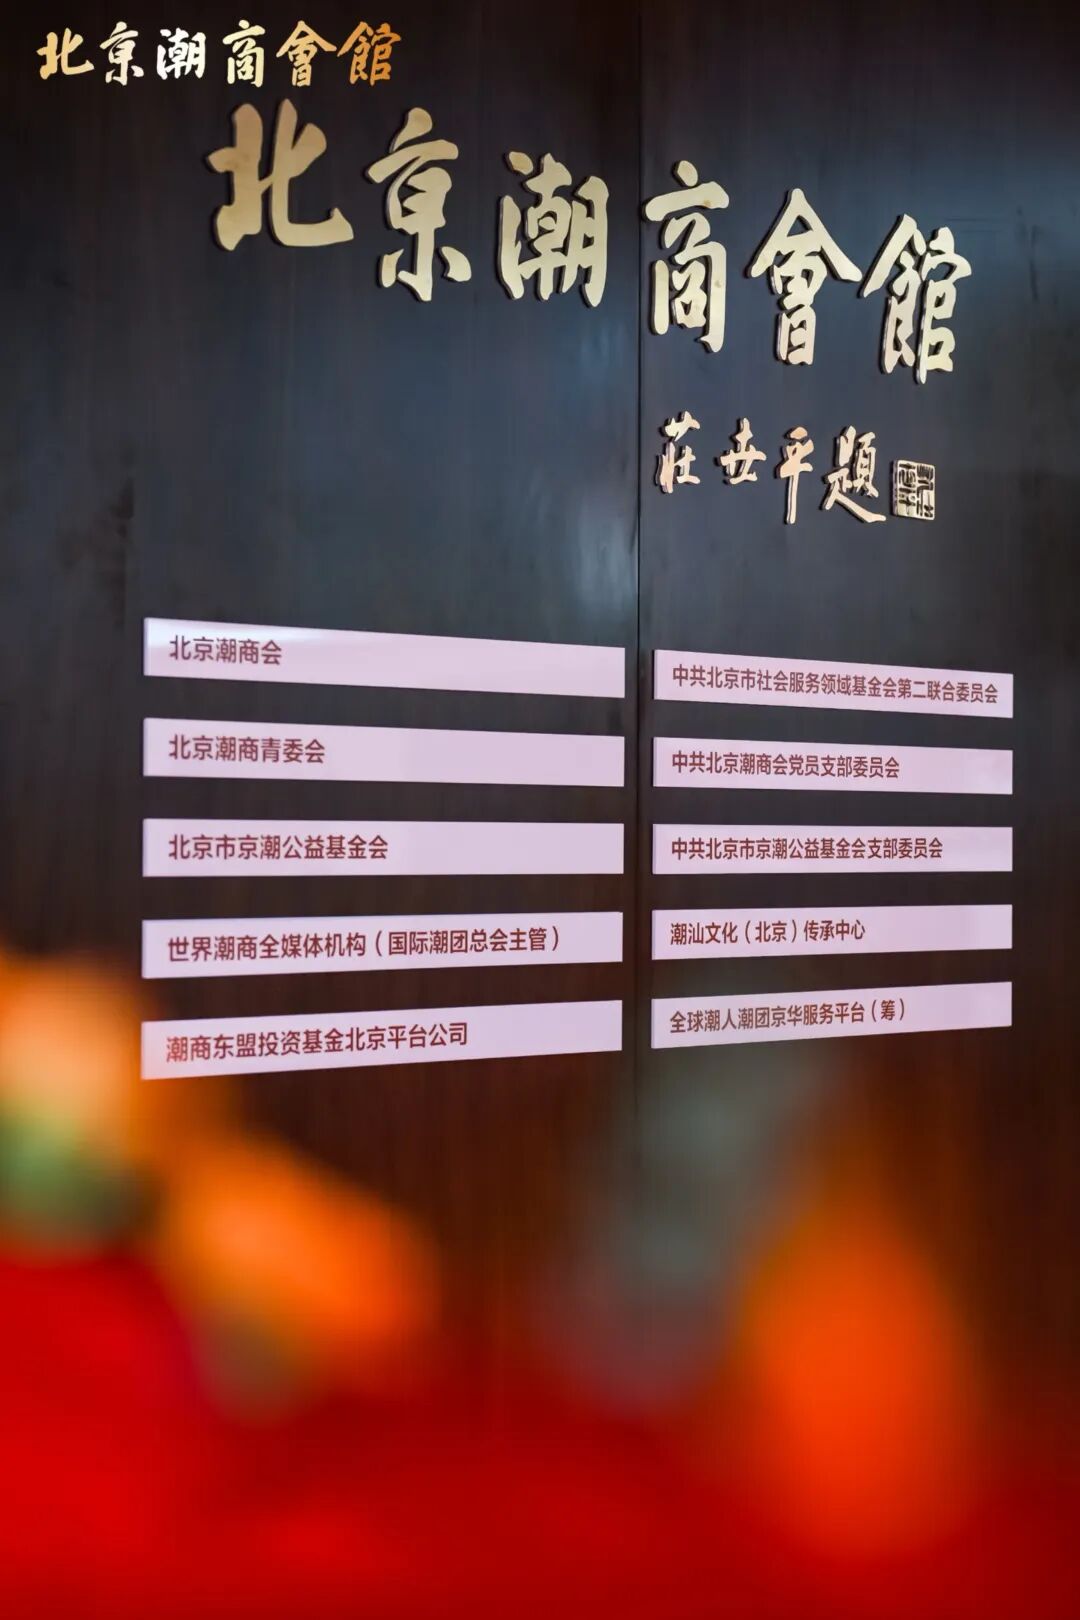 北京潮商會館
北京潮商會館
莊世平題
北京潮商会
北京潮商青委会
北京市京潮公益基金会
世界潮商全媒体机构（国际潮团总会主管）
潮商东盟投资基金北京平台公司
中共北京市社会服务领域基金会第二联合委员会
中共北京潮商会党员支部委员会
中共北京市京潮公益基金会支部委员会
潮汕文化（北京）传承中心
全球潮人潮团京华服务平台（筹）